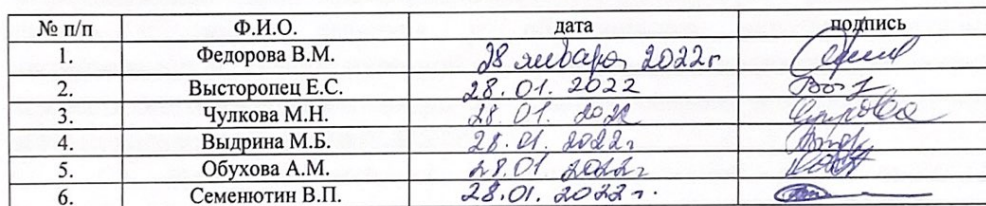 № п/п Ф.И.О. дата подпись
1. Федорова В.М. 28 января 2022г
2. Высторопец Е.С. 28.01.2022
3. Чулкова М.Н. 28.01.2022
4. Выдрина М.Б. 28.01.2022г
5. Обухова А.М. 28.01.2022г
6. Семенютин В.П. 28.01.2022г.